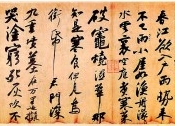 春江欲入戶雨勢來
不已雨小屋如漁舟濛々
水雲裏空庖煮寒菜
破竈燒濕葦那
知是寒食但見烏
銜帋君門深
九重墳墓在万里也擬
哭塗窮死灰吹不